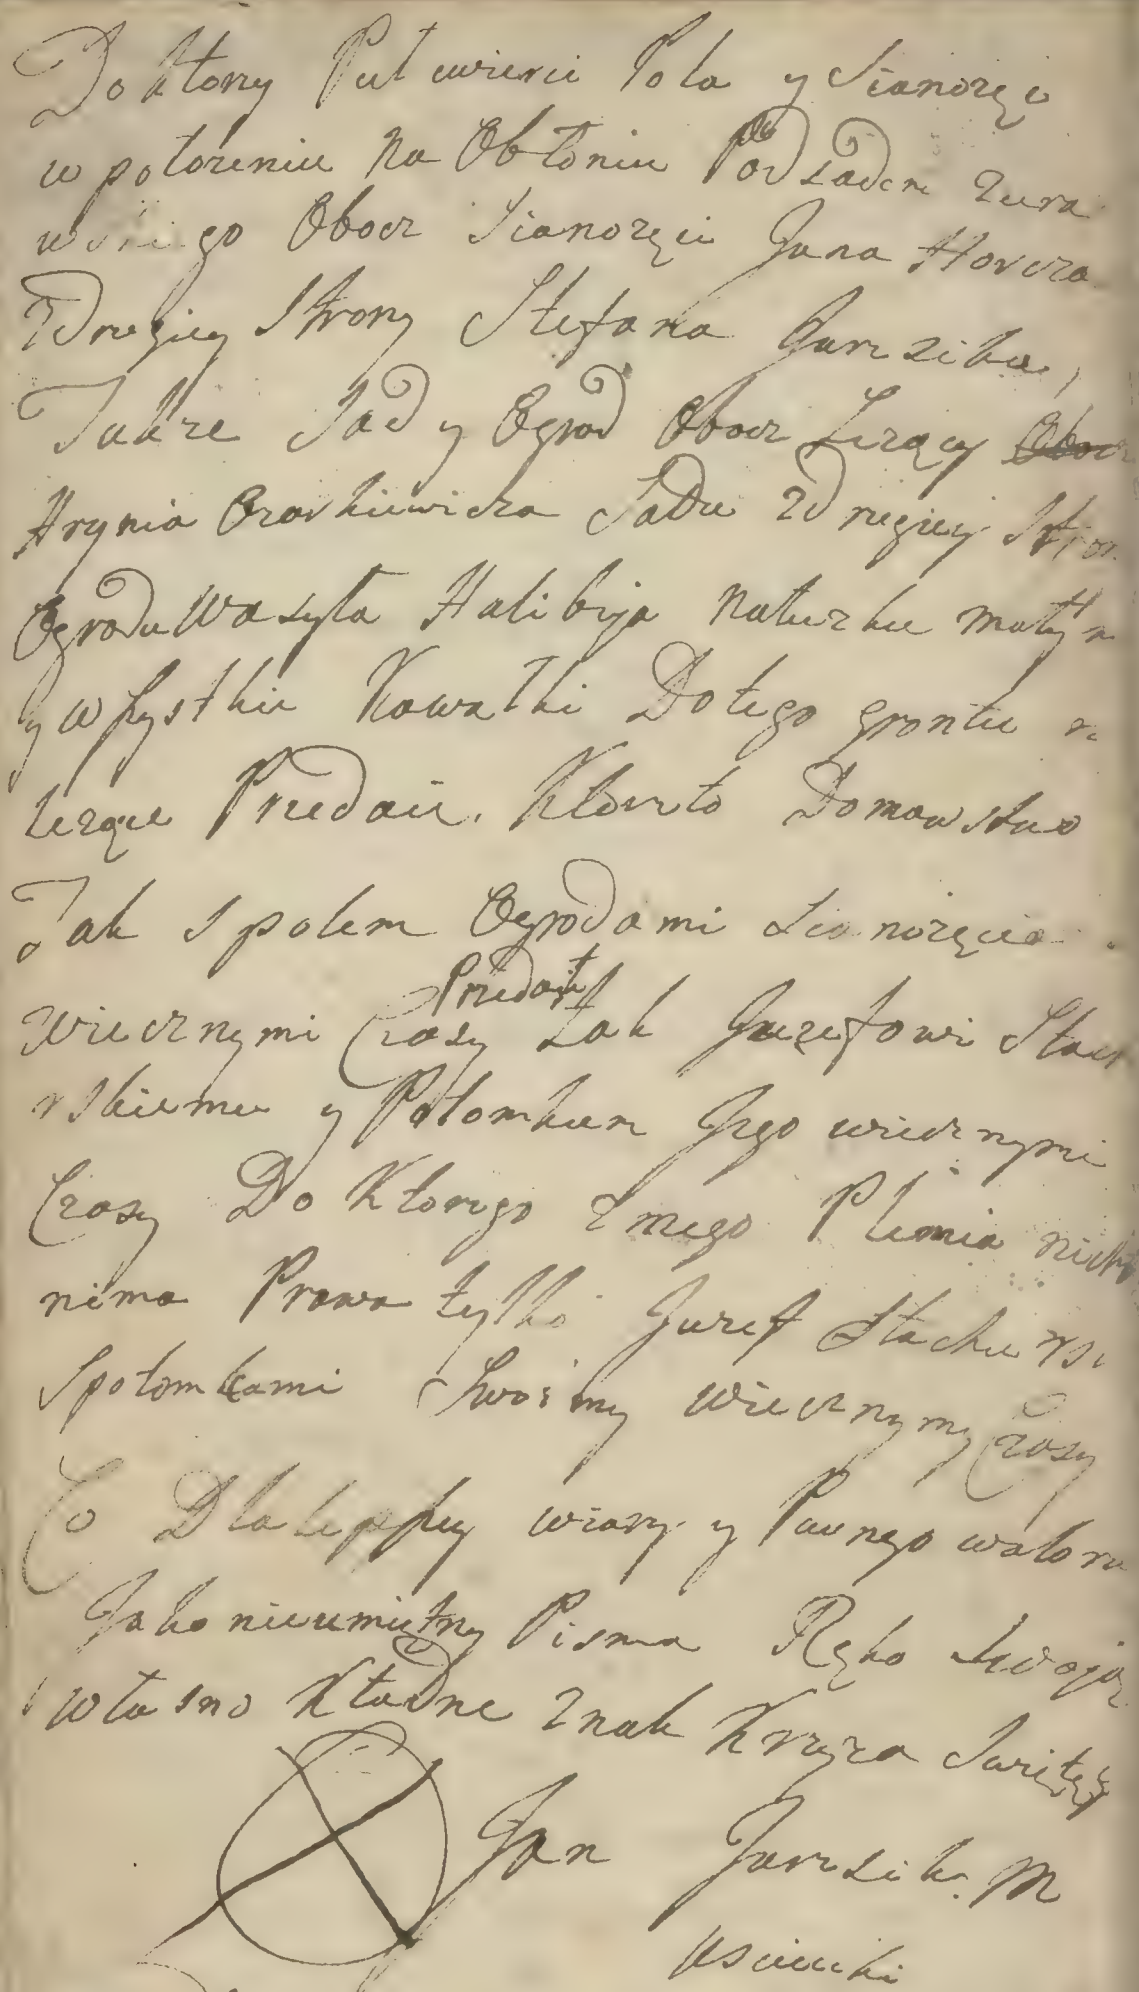 Do ktory Puł cwierci Pola y Sianozęci
w położeniu Na Obłoniu Pod sadem Zura
wskiego Obocz Sianozęci Jana Hovcza
Zdrugiey Strony Stefana Jurzika,
Takze Sad y Ogrod Obocz Lezący Obocz
Hrynia Orarkiewicza Sadu Zdrugiey Stron
Ogrodu Wasyla Halibija Kałuzku małym
y wszystkie Kawałki Do tego gruntu n
lezące Przedaie. Ktore to Domowstwo
Jak spolem Ogrodami Sianozęcia
Przedaię
wiecznymi Czasy tak Juzefowi Stach
rskiemu y Potomkom Jego wiecznymi
Czasy Do Ktorego z mego Plemia nicht
nima Prawa tylko Juzef Stachursk
Spotomkami Swoimy wiecznymy Czasy
Co Dla lepszey wiary y Pewnego waloru
Jako nieumiętny Pisma Ręko Swoją
własno Kładne Znak Krzyza Swiętego
Jan Jurzik M
Usciecki